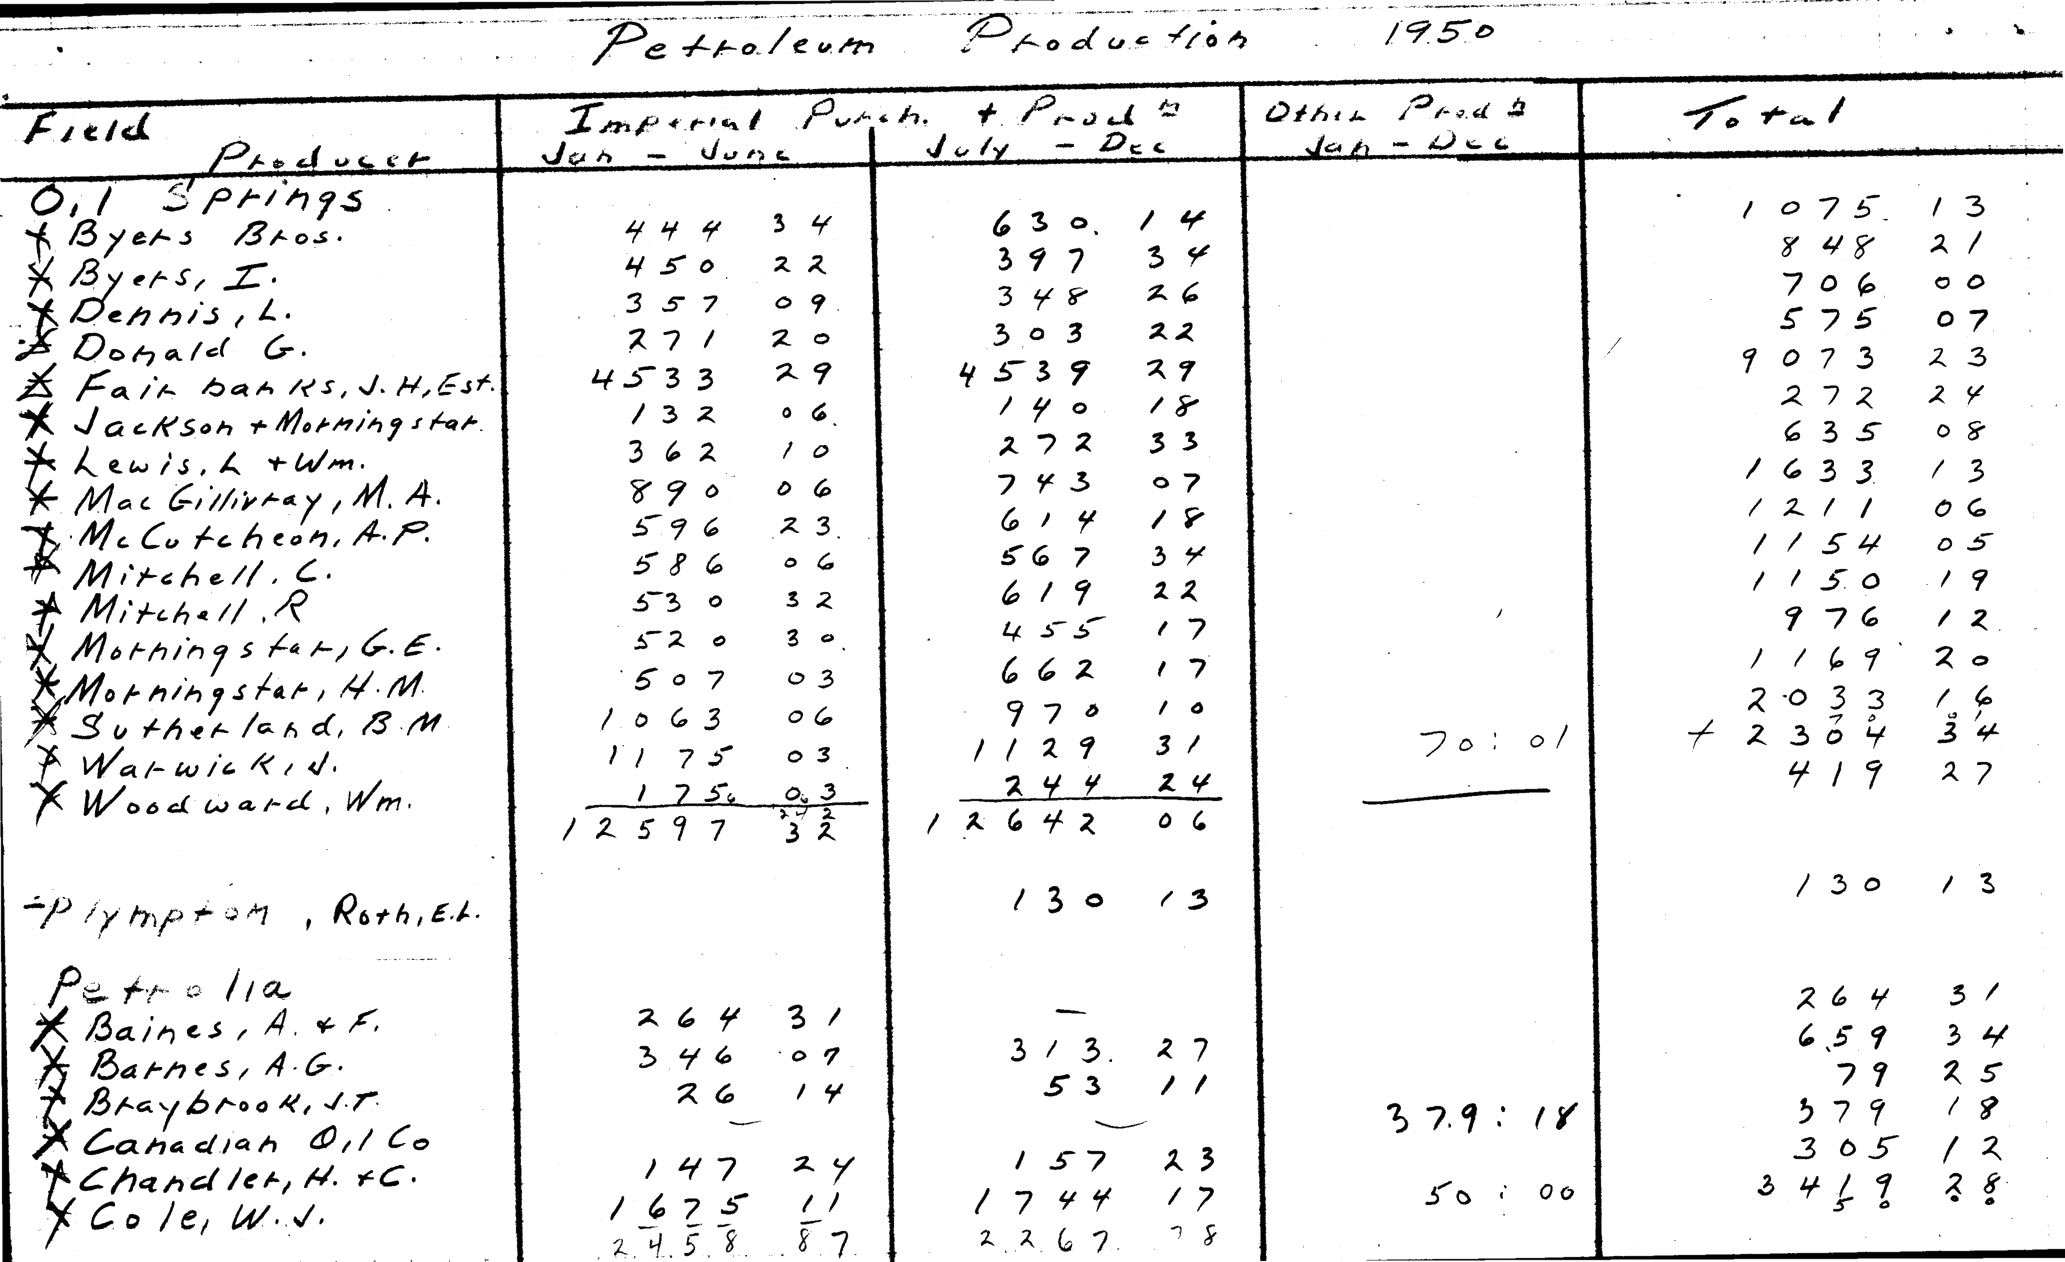 Petroleum Production 1950
Field Producer Imperial Purch. + Prod n Jan - June July - Dec Other Prod n Jan - Dec Total
Oil Springs
Byers Bros. 444 34 630. 14 1075. 13
Byers, I. 450 22 397 34 848 21
Dennis, L. 357 09 348 26 706 00
Donald G. 271 20 303 22 575 07
Fairbanks, J.H, Est. 4533 29 4539 29 9073 23
Jackson + Morningstar. 132 06 140 18 272 24
Lewis, L + Wm. 362 10 272 33 635 08
MacGillivray, M. A. 890 06 743 07 1633 13
McCutcheon, A.P. 596 23 614 18 1211 06
Mitchell. C. 586 06 567 34 1154 05
Mitchell. R 530 32 619 22 1150 19
Morningstar, G.E. 520 30 455 17 976 12
Morningstar, H.M. 507 03 662 17 1169 20
Sutherland, B.M 1063 06 970 10 2033 16
Warwick, J. 1175 03 1129 31 70:01 + 2304 34
Woodward, Wm. 175. 03 244 24 419 27
12597 32 12642 06
Plympton, Roth, E.L. 130 13 130 13
Petrolia
Baines, A. + F. 264 31 — 264 31
Barnes, A.G. 346 07 313. 27 659 34
Braybrook, J.T. 26 14 53 11 79 25
Canadian Oil Co — — 379:18 379 18
Chandler, H. + C. 147 24 157 23 305 12
Cole, W.J. 1675 11 1744 17 50:00 3419 28
2458 87 2267 78